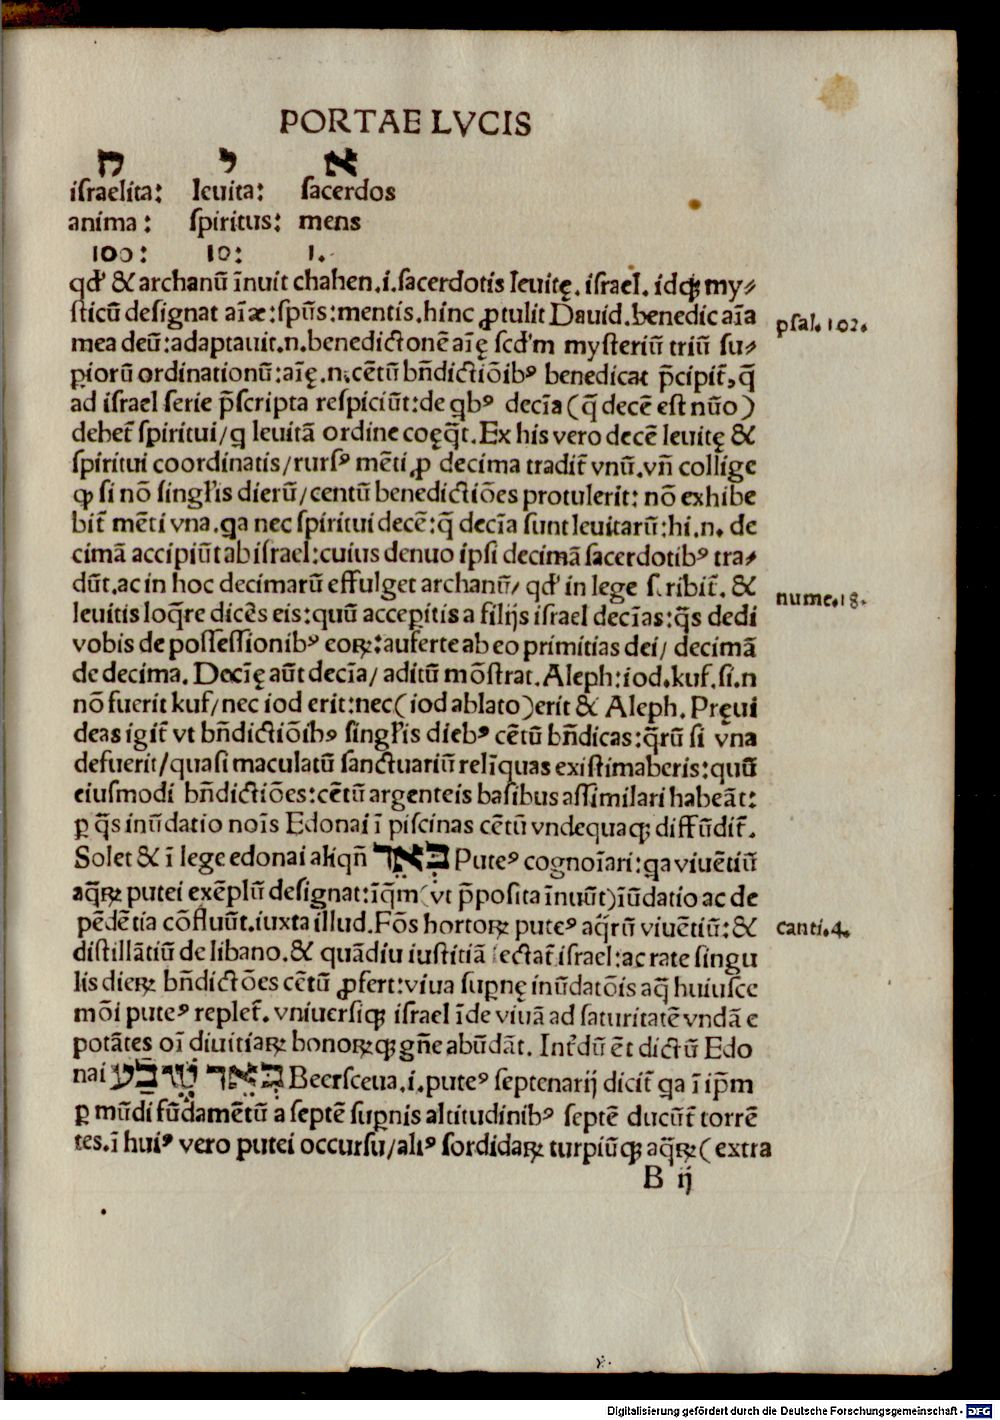 PORTAE LVCIS
ק י א
iſraelita: leuita: ſacerdos
anima: ſpiritus: mens
100: 10: 1.
qđ & archanū īnuit chahen.i.ſacerdotis leuitę. iſrael. idqꝫ my⸗
ſticū deſignat aīæ:ſpūs:mentis.hinc ꝓtulit Dauid.benedic aīa
psal.102.
mea deū:adaptauit.n.benedictōnē aīę ſcđm myſteriū triū ſu⸗
ꝑiorū ordinationū:aīę.n.cētū bñdictiōibꝰ benedicat p̄cipit̄,q̄
ad iſrael ſerie p̄ſcripta reſpiciūt:de qbꝰ decīa (q̄ decē eſt nūo)
debet̄ ſpiritui/q leuitā ordine coęq̄t.Ex his vero decē leuitę &
ſpiritui coordinatis/rurſꝰ mēti ꝓ decima tradit̄ vnū.vñ collige
ꝙ ſi nō ſingłis dierū/centū benedictiōes protulerit: nō exhibe
bit̄ mēti vna.qa nec ſpiritui decē:q̄ decīa ſunt leuitarū:hi.n. de
cimā accipiūt ab iſrael:cuius denuo ipſi decimā ſacerdotibꝰ tra⸗
dūt.ac in hoc decimarū effulget archanū/ qđ in lege ſcribit̄. &
nume.18.
leuitis loq̄re dicēs eis:quū acceꝑitis a filijs iſrael decīas:q̄s dedi
vobis de poſſeſſionibꝰ eoꝝ:auferte ab eo primitias dei/ decimā
de decima. Decīę aūt decīa/ aditū mōſtrat.Aleph:iod.kuf.ſi.n
nō fuerit kuf/nec iod erit:nec(iod ablato)erit & Aleph. Pręui
deas igit̄ vt bñdictiōibꝰ ſingłis diebꝰ cētū bñdicas:q̄rū ſi vna
defuerit/quaſi maculatū ſanctuariū relīquas exiſtimaberis:quū
eiuſmodi bñdictiōes:cētū argenteis baſibus aſſimilari habeāt:
ꝑ q̄s inūdatio noīs Edonai ī piſcinas cētū vndequaqꝫ diffūdit̄.
Solet & ī lege edonai aliqñ בְּאֵר Puteꝰ cognoīari:qa viuētiū
aq̄ꝝ putei exēplū deſignat:īq̄m(vt p̄poſita īnuūt)iūdatio ac de
pēdētia cōfluūt.iuxta illud.Fōs hortoꝝ puteꝰ aq̄rū viuētiū:&
canti.4.
diſtillātiū de libano.& quādiu iuſtitiā ſectat̄ iſrael:ac rate ſingu
lis dieꝝ bñdictōes cētū ꝓfert:viua ſupnę inūdatōis aq̄ huiuſce
mōi puteꝰ replet̄. vniuerſiqꝫ iſrael īde viuā ad ſaturitatē vndā e
potātes oī diuitiaꝝ bonoꝝqꝫ gñe abūdāt. Int̄dū ēt dictū Edo
nai בְּאֵר שֶׁבַע Beerſceua.i.puteꝰ ſeptenarij dicit̄ qa ī ip̄m
ꝑ mūdi fūdamētū a ſeptē ſupnis altitudinibꝰ ſeptē ducūt̄ torrē
tes.ī huiꝰ vero putei occurſu/aliꝰ ſordidaꝝ turpiūqꝫ aq̄ꝝ(extra
B ij
Digitalisierung gefördert durch die Deutsche Forschungsgemeinschaft - DFG